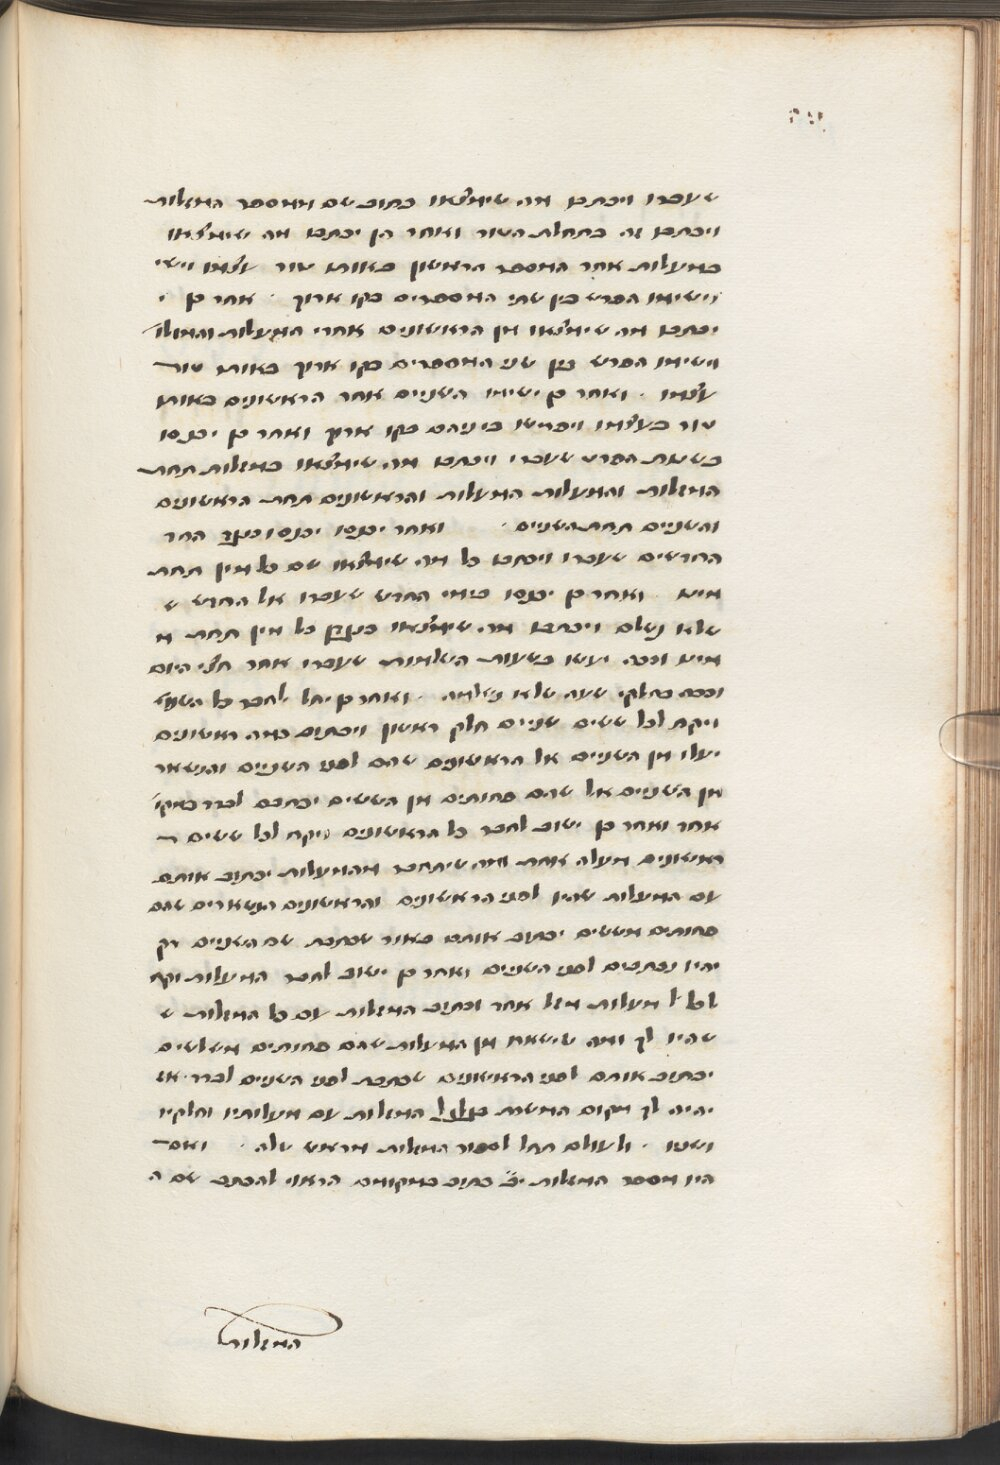 שעברו ויכתבו מה שימצאו כתוב שם ממספר המזלות
ויכתבו זה בתחלת הטור ואחר הן יכתבו מה שימצאו
במעלות אחר המספר הראשון באותו טור עצמו וישי
וישימו הפרש בין שתי המספרים בקו ארוך אחר כן י
יכתבו מה שימצאו מן הראשונים אחרי המעלות והמזלו
וישימו הפרש בין שני המספרים בקו ארוך באותו טור
עצמו ואחר כן ישימו השניים אחר הראשונים באותו
טור בעצמו ויפרישו ביניהם בקו ארוך ואחר כן יכנסו
בשנות הפרט שעברו ויכתבו מה שימצאו במזלות תחת
המזלות והמעלות המעלות והראשונים תחת הראשונים
והשניים תחת השניים ואחר יכנסו יכנסו כנגד החד
החדשים שעברו ויכתבו כל מה שימצאו שם כל מין תחת
מינו ואחר כן יכנסו בימי החדש שעברו אל החדש ש
שלא נשלם ויכתבו מה שימצאו כנגדן כל מין תחת מ
מינו וככה יעשו בשעות השלמות שעברו אחר חצי היום
וככה בחלקי שעה שלא נשלמה ואחר כן יחל לחבר כל השניי
ויקח לכל ששים שניים חלק ראשון ויכתוב כמה ראשונים
יעלו מן השניים אל הראשונים שהם לפני השניים והנשאר
מן השניים אל שהם פחותים מן הששים יכתבם לבדו במקו
אחד ואחר כן ישוב לחבר כל הראשונים ויקח לכל ששים
ראשונים מעלה אחת ומה שיתחבר מהמעלות יכתוב אותם
עם המעלות שהיו לפני הראשונים והראשונים הנשארים שהם
פחותים מששים יכתוב אותם באור שכתבת שם השניים רק
יהיו נכתבים לפני השניים ואחר כן ישוב לחבר המעלות ויקח
לכל ל מעלות מזל אחד וכתוב המזלות עם כל המזלות ש
שהיו לך ומה שישאר מן המעלות שהם פחותים משלשים
יכתוב אותם לפני הראשונים שכתבת לפני השניים לבדו אז
יהיה לך מקום המשרת בגלגל המזלות עם מעלותיו וחלקיו
ושניו ולעולם תחל לספור המזלות מראש טלה ואם
היו מספר המזלות יב כתוב במקומם הראוי להכתב שם ה
המזלות